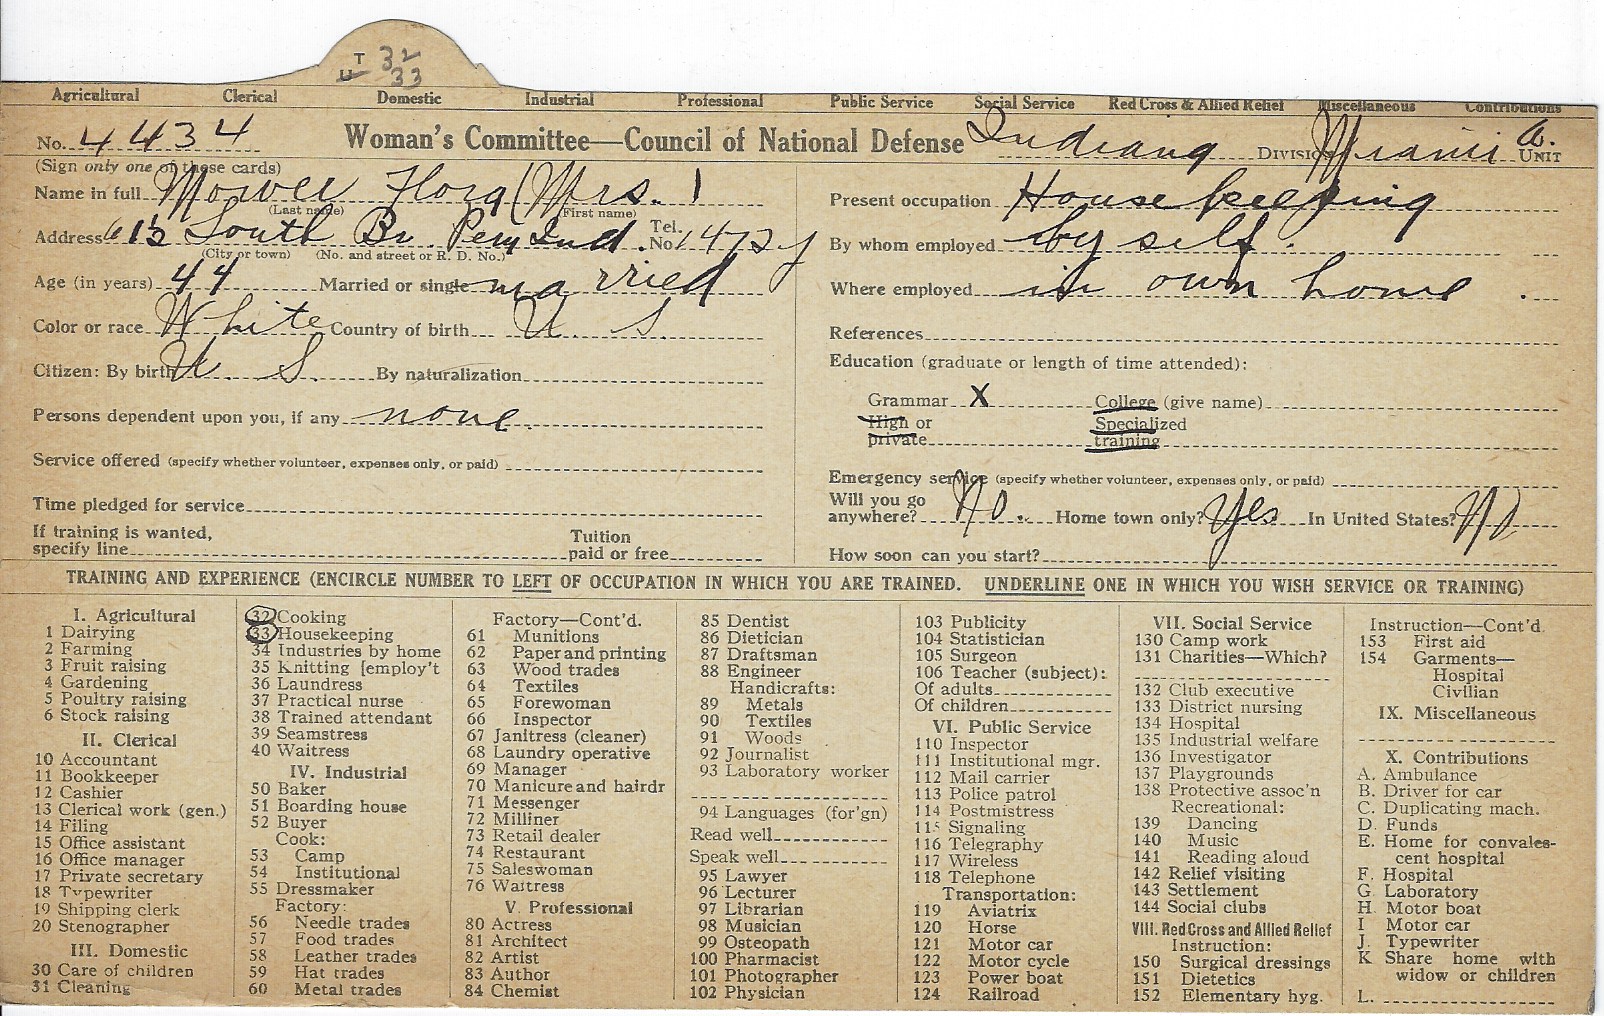 T 32
U 33
Agricultural Clerical Domestic Industrial Professional Public Service Social Service Red Cross & Allied Relief Miscellaneous Contributions
No. 4434 Woman's Committee—Council of National Defense Indiana DIVISION Miami Co. UNIT
(Sign only one of these cards)
Name in full Mowee Flora (Mrs.)
(Last name) (First name)
Address 615 South Br. Peru Ind. Tel. No. 1473 y
(City or town) (No. and street or R. D. No.)
Age (in years) 44 Married or single married
Color or race White Country of birth U S.
Citizen: By birth U. S. By naturalization
Persons dependent upon you, if any none.
Service offered (specify whether volunteer, expenses only, or paid)
Time pledged for service
If training is wanted,
specify line
Tuition
paid or free
Present occupation House keeping
By whom employed by self.
Where employed in own home.
References
Education (graduate or length of time attended):
Grammar X College (give name)
High or Specialized
private training
Emergency service (specify whether volunteer, expenses only, or paid)
Will you go
anywhere? No. Home town only? Yes In United States? No
How soon can you start?
TRAINING AND EXPERIENCE (ENCIRCLE NUMBER TO LEFT OF OCCUPATION IN WHICH YOU ARE TRAINED. UNDERLINE ONE IN WHICH YOU WISH SERVICE OR TRAINING)
I. Agricultural
1 Dairying
2 Farming
3 Fruit raising
4 Gardening
5 Poultry raising
6 Stock raising
II. Clerical
10 Accountant
11 Bookkeeper
12 Cashier
13 Clerical work (gen.)
14 Filing
15 Office assistant
16 Office manager
17 Private secretary
18 Typewriter
19 Shipping clerk
20 Stenographer
III. Domestic
30 Care of children
31 Cleaning
32 Cooking
33 Housekeeping
34 Industries by home
35 Knitting [employ't
36 Laundress
37 Practical nurse
38 Trained attendant
39 Seamstress
40 Waitress
IV. Industrial
50 Baker
51 Boarding house
52 Buyer
Cook:
53 Camp
54 Institutional
55 Dressmaker
Factory:
56 Needle trades
57 Food trades
58 Leather trades
59 Hat trades
60 Metal trades
Factory—Cont'd.
61 Munitions
62 Paper and printing
63 Wood trades
64 Textiles
65 Forewoman
66 Inspector
67 Janitress (cleaner)
68 Laundry operative
69 Manager
70 Manicure and hairdr
71 Messenger
72 Milliner
73 Retail dealer
74 Restaurant
75 Saleswoman
76 Waitress
V. Professional
80 Actress
81 Architect
82 Artist
83 Author
84 Chemist
85 Dentist
86 Dietician
87 Draftsman
88 Engineer
Handicrafts:
89 Metals
90 Textiles
91 Woods
92 Journalist
93 Laboratory worker
94 Languages (for'gn)
Read well
Speak well
95 Lawyer
96 Lecturer
97 Librarian
98 Musician
99 Osteopath
100 Pharmacist
101 Photographer
102 Physician
103 Publicity
104 Statistician
105 Surgeon
106 Teacher (subject):
Of adults
Of children
VI. Public Service
110 Inspector
111 Institutional mgr.
112 Mail carrier
113 Police patrol
114 Postmistress
115 Signaling
116 Telegraphy
117 Wireless
118 Telephone
Transportation:
119 Aviatrix
120 Horse
121 Motor car
122 Motor cycle
123 Power boat
124 Railroad
VII. Social Service
130 Camp work
131 Charities—Which?
132 Club executive
133 District nursing
134 Hospital
135 Industrial welfare
136 Investigator
137 Playgrounds
138 Protective assoc'n
Recreational:
139 Dancing
140 Music
141 Reading aloud
142 Relief visiting
143 Settlement
144 Social clubs
VIII. Red Cross and Allied Relief
Instruction:
150 Surgical dressings
151 Dietetics
152 Elementary hyg.
Instruction—Cont'd.
153 First aid
154 Garments—
Hospital
Civilian
IX. Miscellaneous
X. Contributions
A. Ambulance
B. Driver for car
C. Duplicating mach.
D. Funds
E. Home for convales-
cent hospital
F. Hospital
G. Laboratory
H. Motor boat
I Motor car
J. Typewriter
K Share home with
widow or children
L.